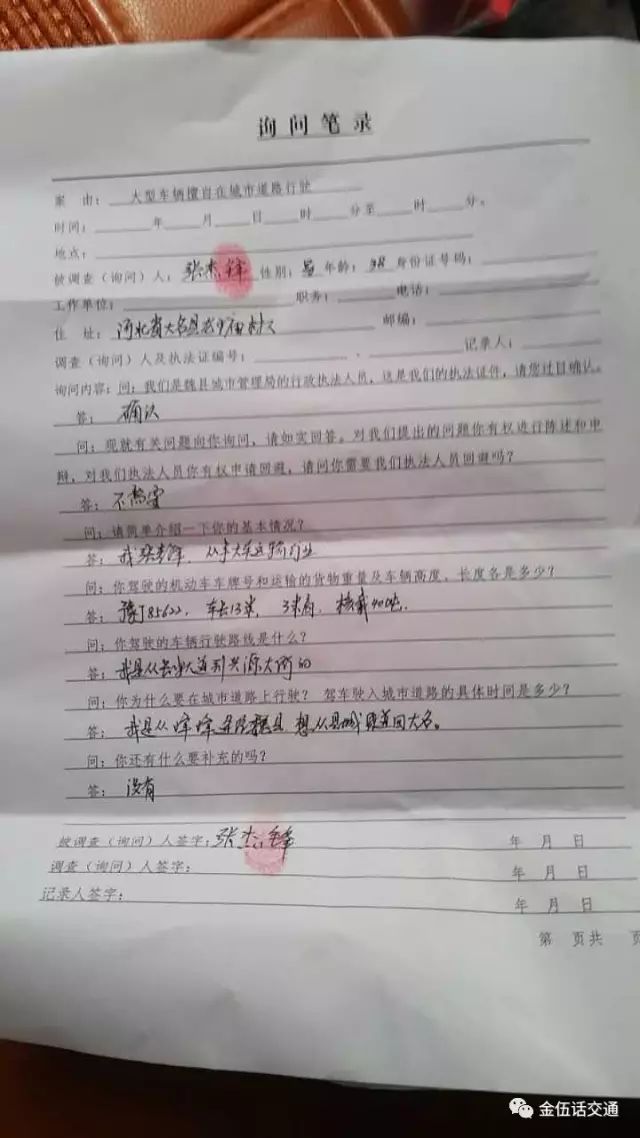 询问笔录
案 由：大型车辆擅自在城市道路行驶
时间：年 月 日 时 分至 时 分。
地点：
被调查（询问）人：张杰锋 性别：男 年龄：38 身份证号码：
工作单位： 职务： 电话：
住 址：河北省大名县 村 邮编：
调查（询问）人及执法证编号： 、 记录人：
询问内容：问：我们是魏县城市管理局的行政执法人员，这是我们的执法证件，请您过目确认。
答：确认
问：现就有关问题向你询问，请如实回答。对我们提出的问题你有权进行陈述和申
辩，对我们执法人员你有权申请回避，请问你需要我们执法人员回避吗？
答：不需要
问：请简单介绍一下你的基本情况？
答：我张杰锋，从事大车运输行业
问：你驾驶的机动车车牌号和运输的货物重量及车辆高度、长度各是多少？
答：豫J85622，车长13米，3米高，核载40吨.
问：你驾驶的车辆行驶路线是什么？
答：我是从 大道到兴源大街的
问：你为什么要在城市道路上行驶？ 驾车驶入城市道路的具体时间是多少？
答：我是从峰峰 魏县 想从县城 回大名。
问：你还有什么要补充的吗？
答：没有
被调查（询问）人签字：张杰锋 年 月 日
调查（询问）人签字： 年 月 日
记录人签字： 年 月 日
第 页共 页
金伍话交通